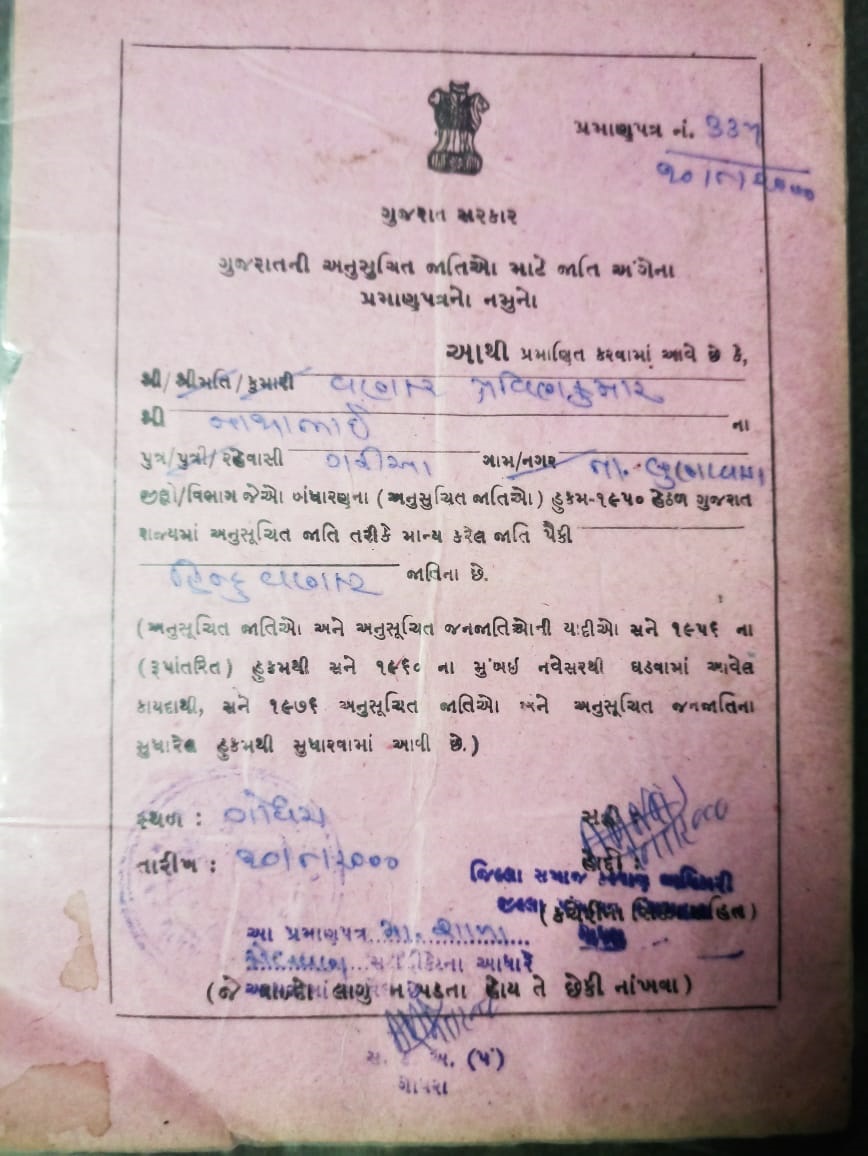 પ્રમાણપત્ર નં. ૩૩૫
૨૦/૮/૨૦૦૦
ગુજરાત સરકાર
ગુજરાતની અનુસુચિત જાતિઓ માટે જાતિ અંગેના
પ્રમાણપત્રનો નમુનો
આથી પ્રમાણિત કરવામાં આવે છે કે,
શ્રી/શ્રીમતિ/કુમારી વણકર પ્રવિણકુમાર
શ્રી નાથાભાઈ ના
પુત્ર/પુત્રી/રહેવાસી ગામ/નગર તા. લુણાવાડા
જીલ્લો/વિભાગ જેઓ બંધારણના (અનુસુચિત જાતિઓ) હુકમ-૧૯૫૦ હેઠળ ગુજરાત
રાજ્યમાં અનુસૂચિત જાતિ તરીકે માન્ય કરેલ જાતિ પૈકી
હિન્દુ વણકર જાતિના છે.
(અનુસૂચિત જાતિઓ અને અનુસૂચિત જનજાતિઓની યાદીઓ સને ૧૯૫૬ ના
(રૂપાંતરિત) હુકમથી સને ૧૯૬૦ ના મુંબઈ નવેસરથી ઘડવામાં આવેલ
કાયદાથી, સને ૧૯૭૬ અનુસૂચિત જાતિઓ અને અનુસૂચિત જનજાતિના
સુધારેલ હુકમથી સુધારવામાં આવી છે.)
સ્થળ : ગોધરા સહી
તારીખ : ૨૦/૮/૨૦૦૦ હોદ્દો :
જિલ્લા સમાજ કલ્યાણ અધિકારી
(કચેરીના સિક્કા સહિત)
આ પ્રમાણપત્ર મા. શાળા
સર્ટીફીકેટના આધારે
(જે લાગુ ન પડતા હોય તે છેકી નાંખવા)
સ. ક. અ. (પં)
ગોધરા